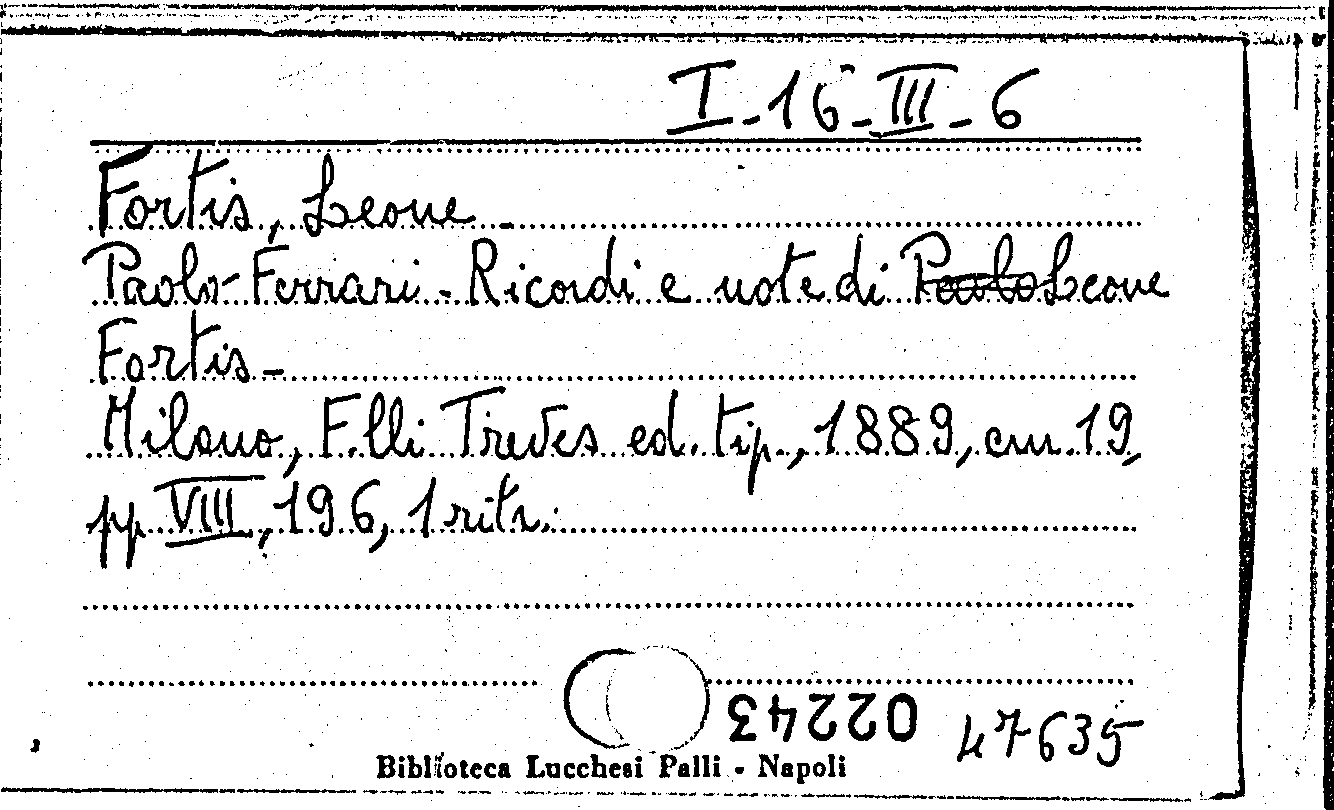 I-16-III-6
Fortis, Leone -
Paolo Ferrari - Ricordi e note di Paolo Leone
Fortis -
Milano, F.lli Treves ed. tip., 1889, cm. 19,
pp VIII, 196, 1 ritr.
02243
47635
Biblioteca Lucchesi Palli - Napoli